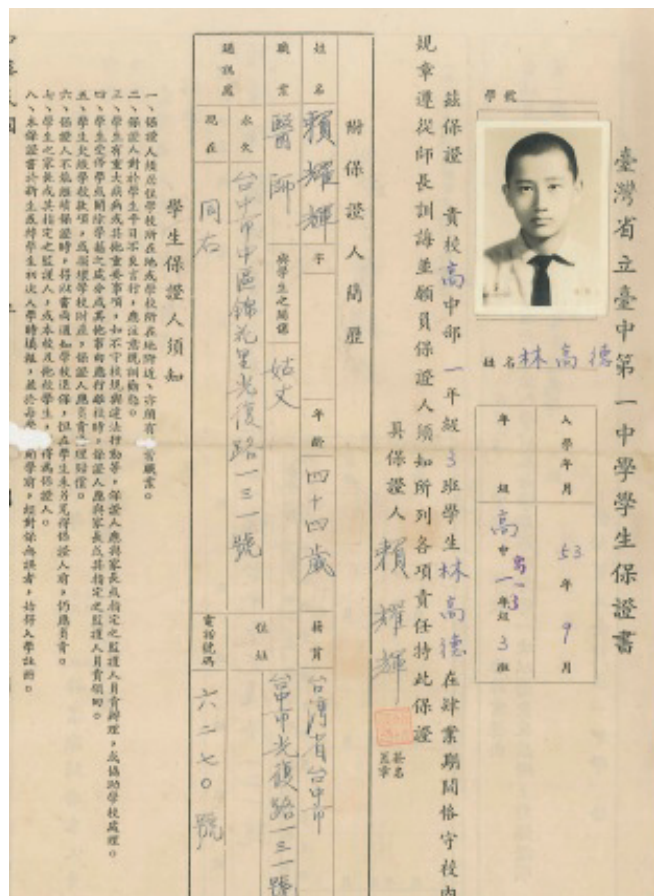 臺灣省立臺中第一中學學生保證書
學號
姓名 林高德
入學年月 53年9月
年組 高中一年組3班
茲保證 貴校高中部一年級3班學生林高德在肄業期間恪守校內
規章遵從師長訓誨並願負保證人須知所列各項責任特此保證
具保證人 賴耀輝
簽名
蓋章
附保證人簡歷
姓名 賴耀輝
年齡 四十四歲
籍貫 台灣省台中市
職業 醫師
與學生之關係 姑丈
住址 台中市光復路一三一號
通訊處
永久 台中市中區錦花里光復路一三一號
現在 同右
電話號碼 六二七〇號
學生保證人須知
一、保證人須居住學校所在地或學校所在地附近、並須有 當職業。
二、保證人對於學生平日不良言行，應注意規訓勸勉。
三、學生有重大疾病或其他重要事項，如不守校規與違法行動等，保證人應與家長或指定之監護人員責辦理，或協助學校處理。
四、學生受停學或開除學籍之處分或其他事由應行離校時，保證人應與家長或其指定之監護人員責領回。
五、學生欠繳學校款項，或損壞學校財產，保證人應負責 理賠償。
六、保證人不能繼續保證時，得以書面通知學校退保，但在學生未另覓得保證人前，仍應負責。
七、學生之家長或其指定之監護人，或本校及他校學生， 得為保證人。
八、本保證書於新生或轉學生初次入學時填報，並於每學 開學前，經對保無誤者，始得入學註冊。